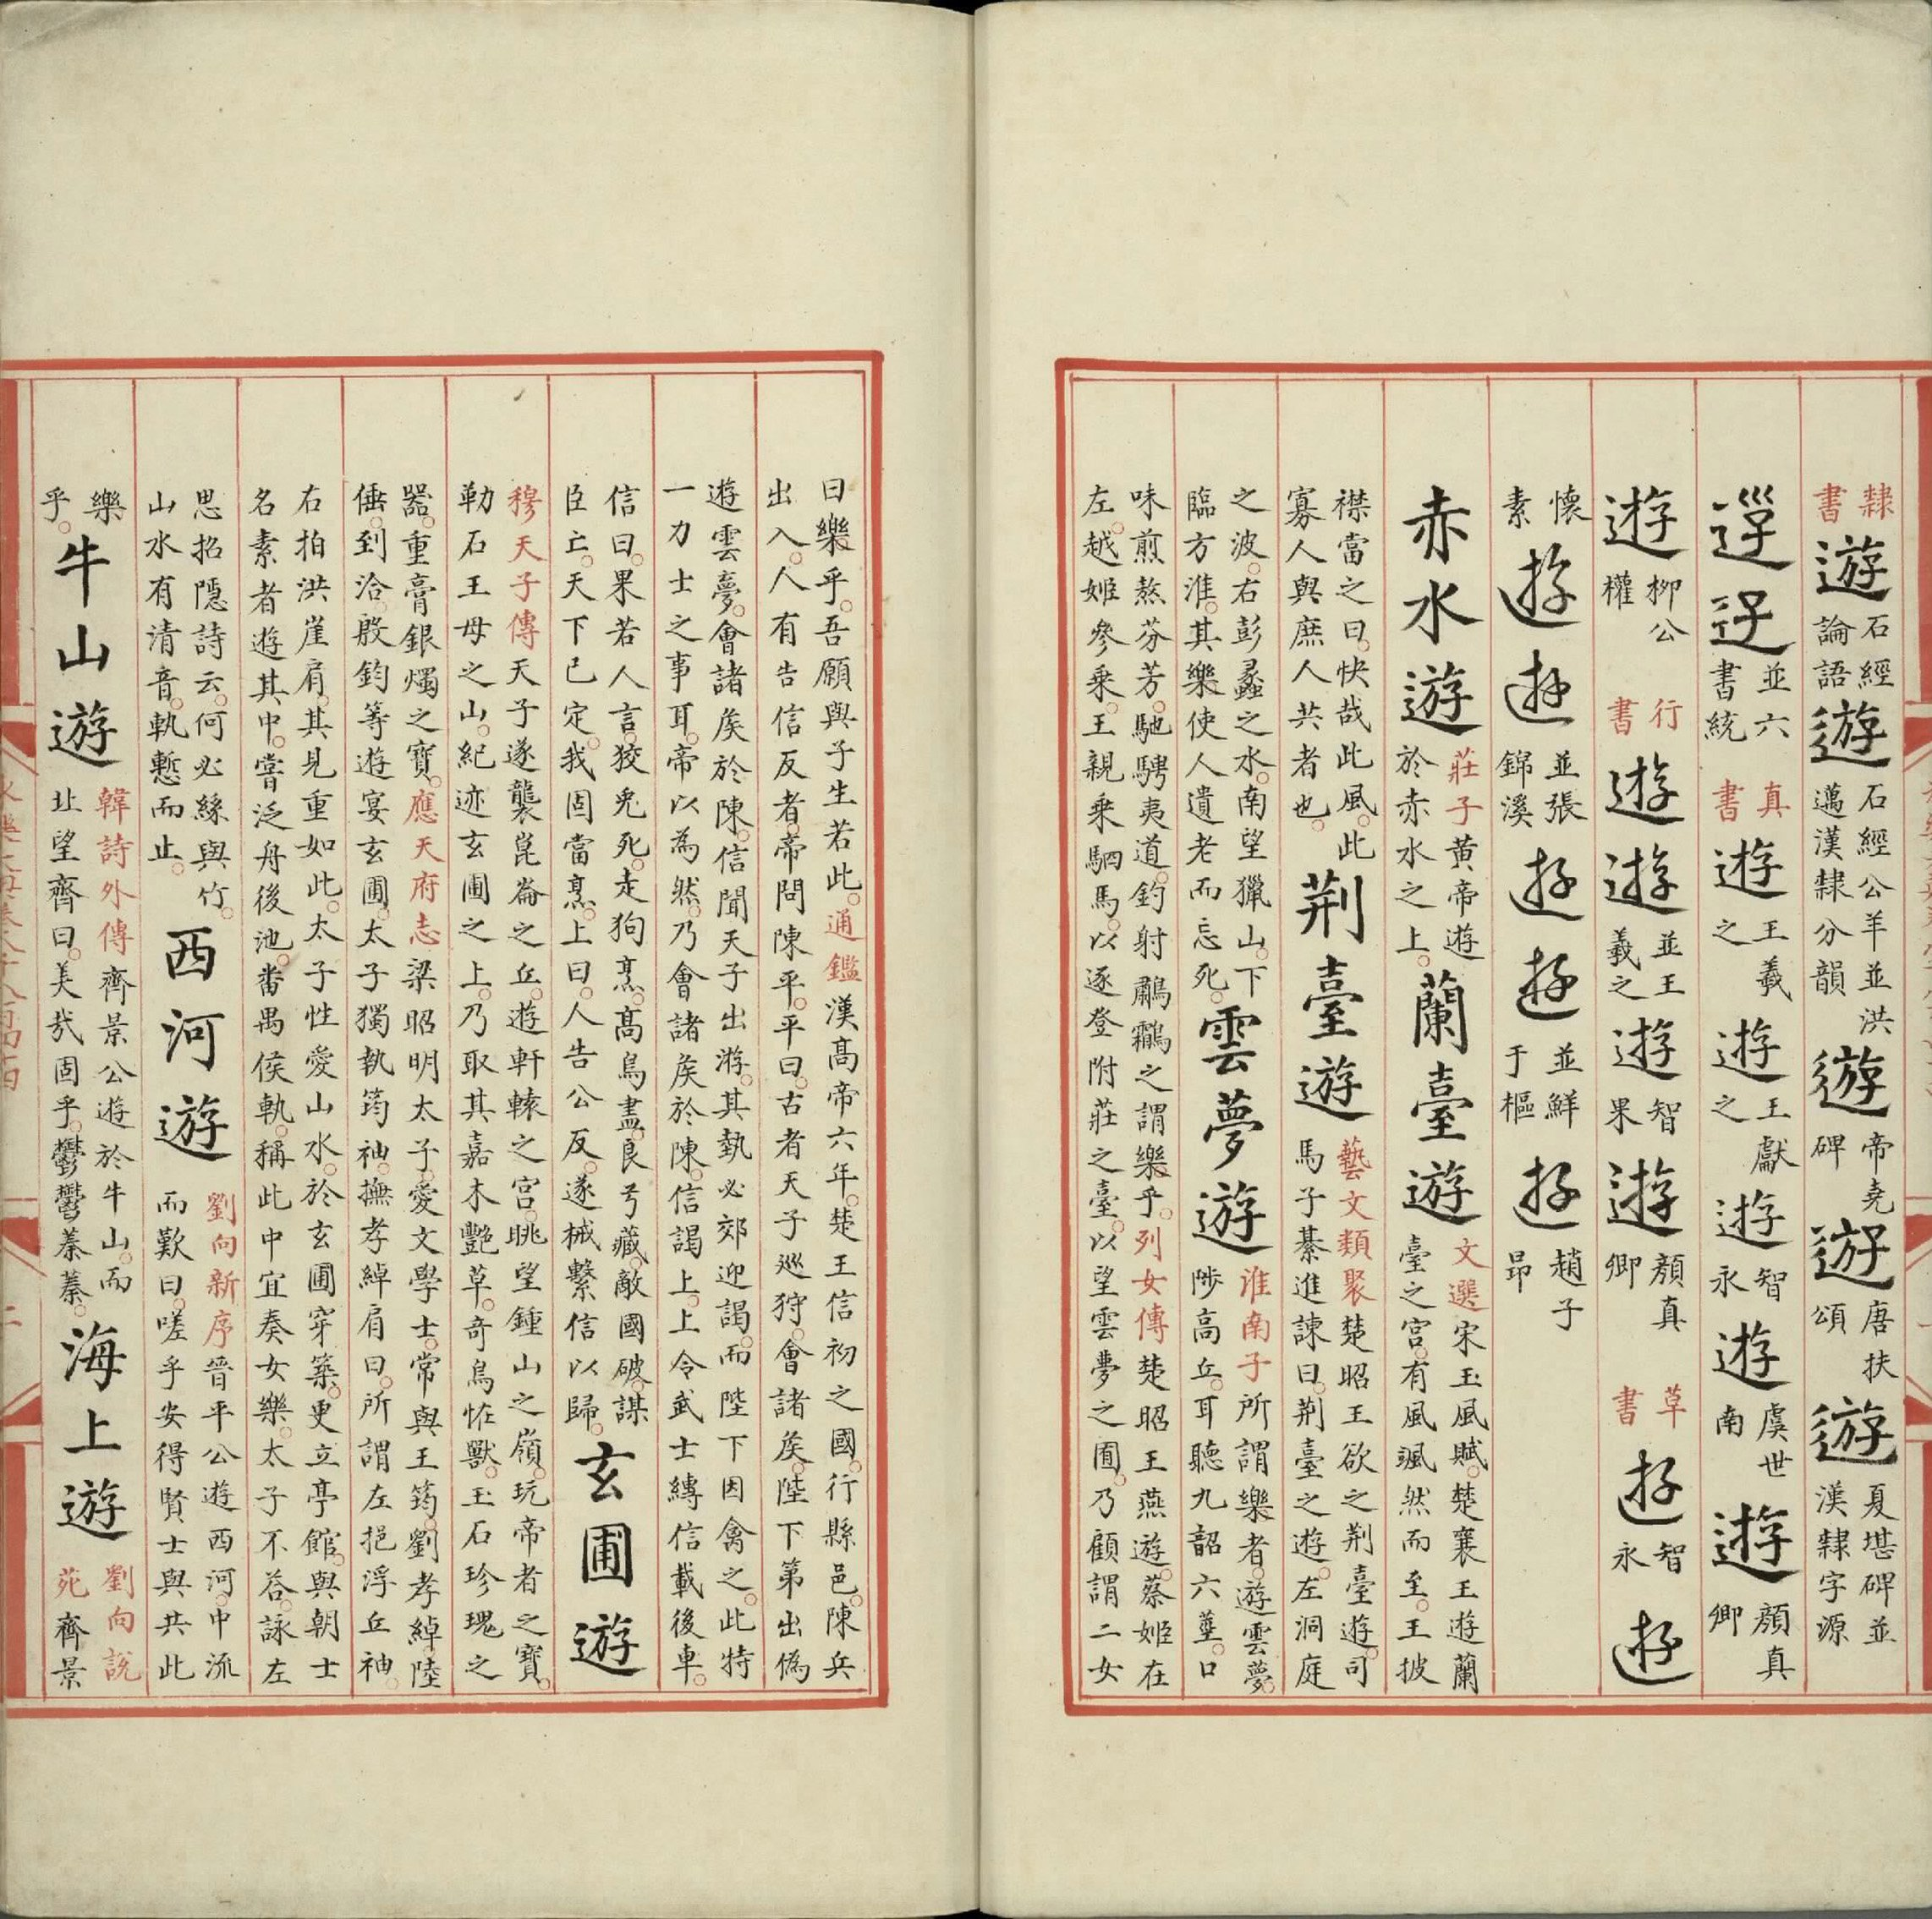 隸書遊石經論語遊石經公羊並洪邁漢隸分韻遊帝堯碑遊唐扶頌遊夏堪碑並漢隸字源
並六書統真書遊王羲之遊王獻之遊智永遊虞世南遊顏真卿
遊柳公權行書遊遊並王羲之遊智果遊顏真卿草書遊智永遊
懷素遊遊並張錦溪遊遊並鮮于樞遊趙子昂
赤水遊莊子黃帝遊於赤水之上。蘭臺遊文選宋玉風賦。楚襄王遊蘭臺之宮。有風颯然而至。王披
襟當之曰。快哉此風。此寡人與庶人共者也。荆臺遊藝文類聚楚昭王欲之荆臺遊。司馬子綦進諫曰。荆臺之遊。左洞庭
之波。右彭蠡之水。南望獵山。下臨方淮。其樂使人遺老而忘死。雲夢遊淮南子所謂樂者。遊雲夢。陟高丘。耳聽九韶六莖。口
味煎熬芬芳。馳騁夷道。釣射鷫鸘之謂樂乎。列女傳楚昭王燕遊。蔡姬在
左。越姬參乘。王親乘駟馬。以逐登附莊之臺。以望雲夢之囿。乃顧謂二女
曰樂乎。吾願與子生若此。通鑑漢高帝六年。楚王信初之國。行縣邑。陳兵
出入。人有告信反者。帝問陳平。平曰。古者天子巡狩。會諸矦。陛下第出偽
遊雲夢。會諸矦於陳。信聞天子出游。其執必郊迎謁。而陛下因禽之。此特
一力士之事耳。帝以為然。乃會諸矦於陳。信謁上。上令武士縛信載後車。
信曰。果若人言。狡兎死。走狗烹。高鳥盡。良弓藏。敵國破。謀
臣亡。天下已定。我固當烹。上曰。人告公反。遂械繫信以歸。玄圃遊
穆天子傳天子遂襲崑崙之丘。遊軒轅之宮。眺望鍾山之嶺。玩帝者之寶。
勒石王母之山。紀迹玄圃之上。乃取其嘉木艷草。奇鳥恠獸。玉石珍瑰之
器。重膏銀燭之寶。應天府志梁昭明太子。愛文學士。常與王筠。劉孝綽陸
倕。到洽。殷鈞等遊宴玄圃。太子獨執筠袖。撫孝綽肩曰。所謂左挹浮丘袖。
右拍洪崖肩。其見重如此。太子性愛山水。於玄圃穿築。更立亭館。與朝士
名素者遊其中。嘗泛舟後池。畨禺侯軌。稱此中宜奏女樂。太子不答。詠左
思招隱詩云。何必絲與竹。山水有清音。軌慙而止。西河遊劉向新序晉平公遊西河。中流而歎曰。嗟乎安得賢士與共此
樂乎。牛山遊韓詩外傳齊景公遊於牛山。而北望齊曰。美㦲固乎。鬱鬱蓁蓁。海上遊劉向說苑齊景